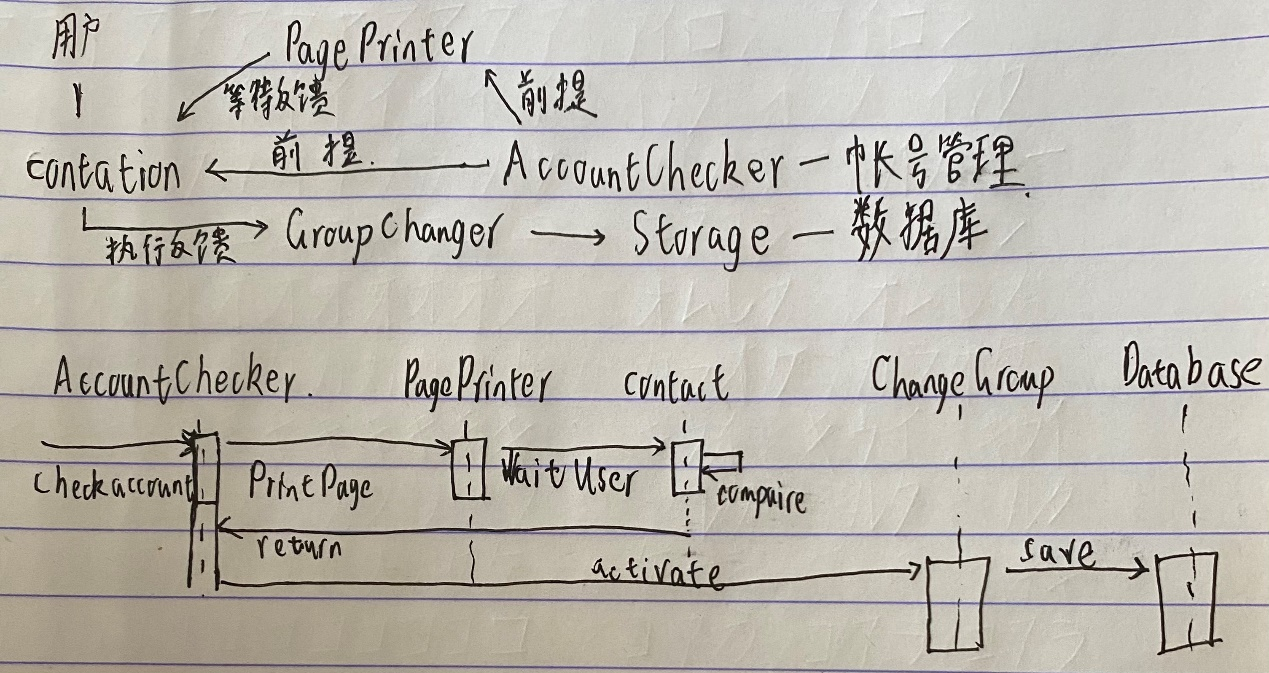 用户 PagePrinter
等待反馈 前提
contation 前提. AccountChecker - 帐号管理.
执行反馈 GroupChanger Storage - 数据库
AccountChecker. PagePrinter contact ChangeGroup Database
checkaccount PrintPage WaitUser compaire
return activate save